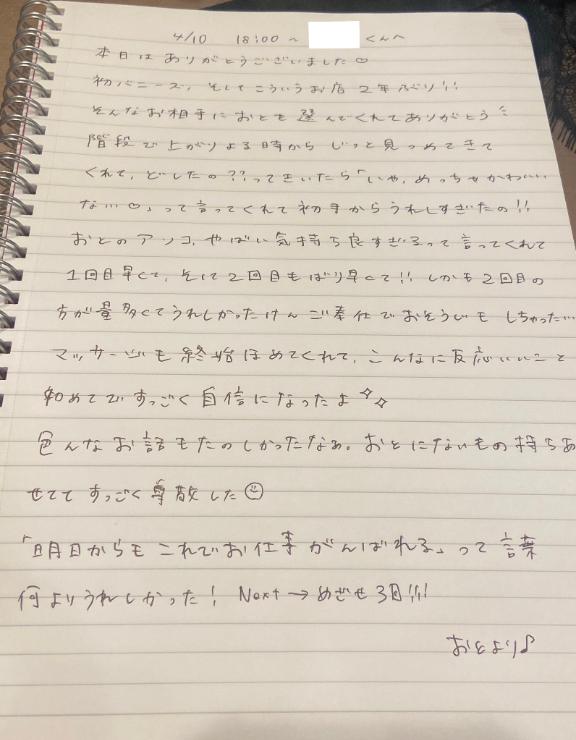 4/10 18:00〜 くんへ
本日はありがとうございました♡
初バニーズ、そしてこういうお店2年ぶり!!
そんなお相手におとを選んでくれてありがとう
階段で上がりよる時からじっと見つめてきて
くれて、どしたの??ってきいたら「いや、めっちゃかわいい…
な…♡」って言ってくれて初手からうれしすぎたの!!
おとのアソコ、やばい気持ち良すぎるって言ってくれて
1回目早くて、そして2回目もばり早くて!! しかも2回目の
方が量多くてうれしかったけん ご奉仕でおそうじも しちゃった…
マッサージも終始ほめてくれて、こんなに反応いいこと
初めてですっごく自信になったよ✧✧
色んなお話もたのしかったなぁ。おとにないもの持ちあ
せてて すっごく尊敬した☺
「明日からもこれでお仕事がんばれる」って言葉
何よりうれしかった! Next→めざせ3回!!!
おとより♪